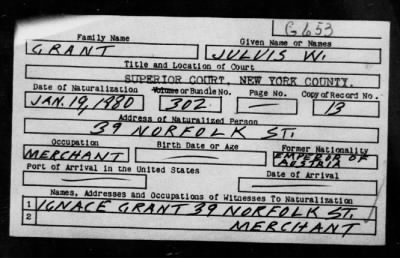 G 653
Family Name Given Name or Names
GRANT JULVIS W.
Title and Location of Court
SUPERIOR COURT, NEW YORK COUNTY.
Date of Naturalization Volume or Bundle No. Page No. Copy of Record No.
JAN. 19, 1880 302 — 13
Address of Naturalized Person
39 NORFOLK ST.
Occupation Birth Date or Age Former Nationality
MERCHANT — EMPEROR OF AUSTRIA
Port of Arrival in the United States Date of Arrival
— —
Names, Addresses and Occupations of Witnesses To Naturalization
1 IGNACE GRANT 39 NORFOLK ST.
2 MERCHANT